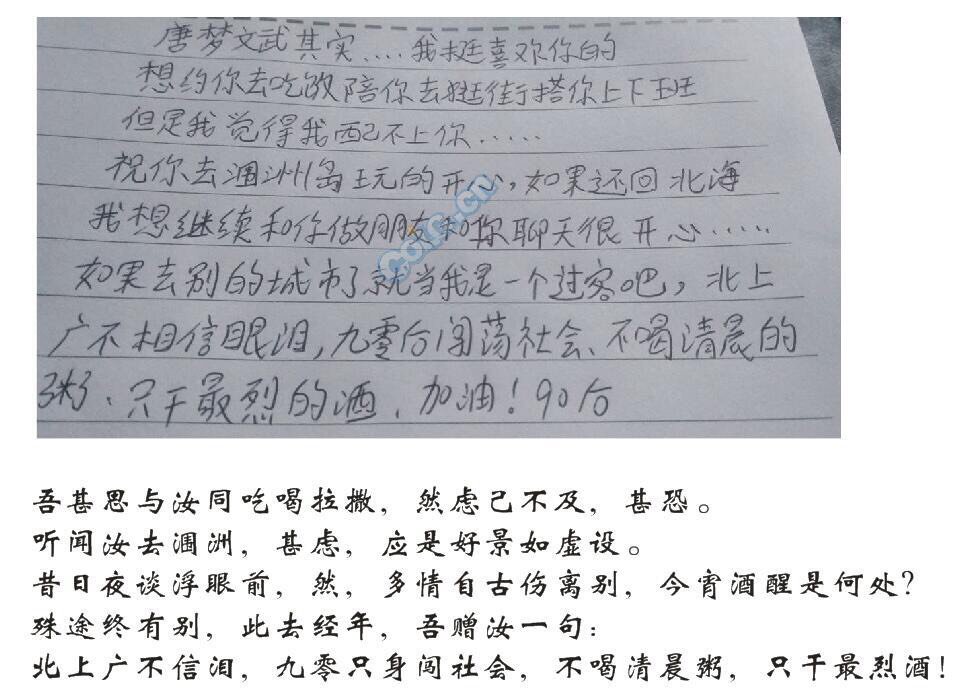 唐梦文武其实....我挺喜欢你的
想约你去吃饭陪你去逛街搭你上下班
但是我觉得我配不上你......
祝你去涠洲岛玩的开心,如果还回北海
我想继续和你做朋友和你聊天很开心......
如果去别的城市了就当我是一个过客吧,北上
广不相信眼泪,九零后闯荡社会、不喝清晨的
粥、只干最烈的酒、加油!90后
coic.cn
吾甚思与汝同吃喝拉撒，然虑己不及，甚恐。
听闻汝去涠洲，甚虑，应是好景如虚设。
昔日夜谈浮眼前，然，多情自古伤离别，今宵酒醒是何处？
殊途终有别，此去经年，吾赠汝一句：
北上广不信泪，九零只身闯社会，不喝清晨粥，只干最烈酒！